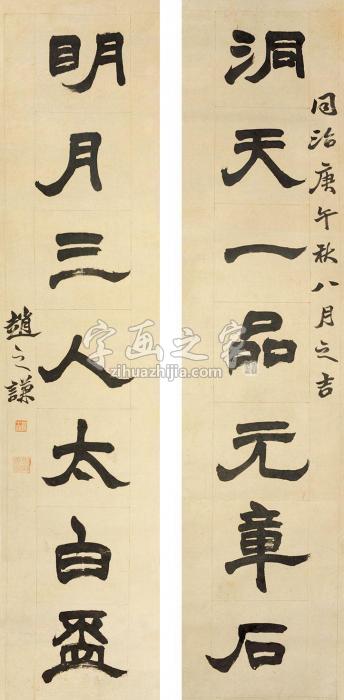 同治庚午秋八月之吉
洞天一品元章石
明月三人太白盃
趙之謙
字画之家
zihuazhijia.com